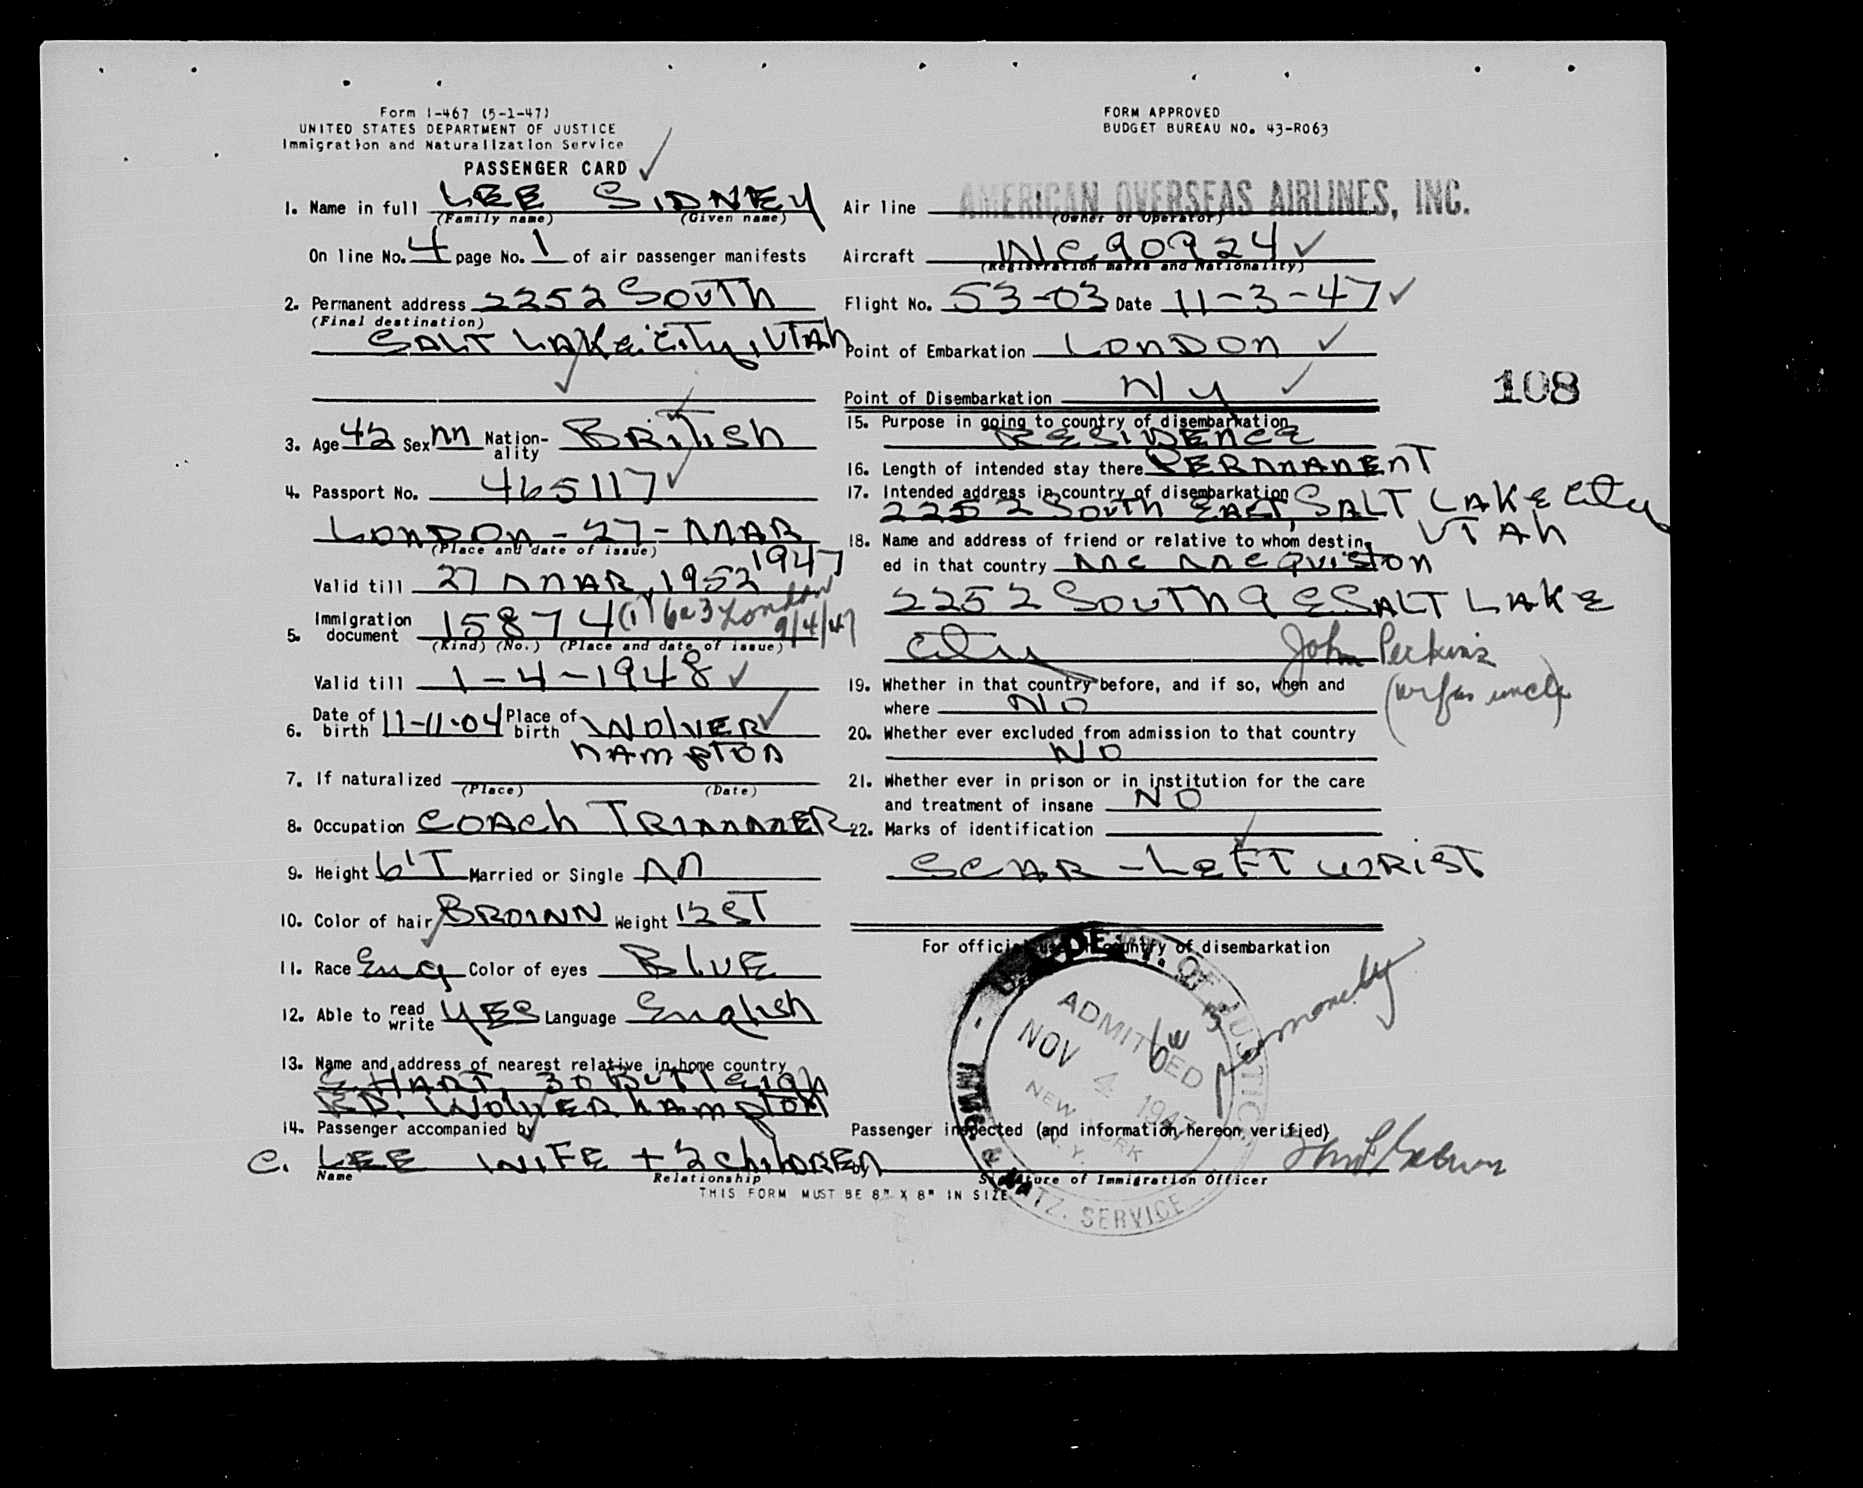 Form I-467 (5-1-47)
UNITED STATES DEPARTMENT OF JUSTICE
Immigration and Naturalization Service
PASSENGER CARD
FORM APPROVED
BUDGET BUREAU NO. 43-R063
1. Name in full LEE SIDNEY
(Family name) (Given name)
On line No. 4 page No. 1 of air passenger manifests
2. Permanent address 2252 SOUTH
(Final destination)
SALT LAKE CITY, UTAH
3. Age 42 Sex M Nation-ality BRITISH
4. Passport No. 465117
LONDON - 27 - MAR
1947
(Place and date of issue)
Valid till 27 MAR, 1952
5. Immigration document 15874 (1) 6a3 London
9/4/47
(Kind) (No.) (Place and date of issue)
Valid till 1-4-1948
6. Date of birth 11-11-04 Place of birth WOLVER
HAMPTON
7. If naturalized
(Place) (Date)
8. Occupation COACH TRIMMER
9. Height 6'T Married or Single M
10. Color of hair BROWN Weight 12 ST
11. Race Eng Color of eyes BLUE
12. Able to read write YES Language English
13. Name and address of nearest relative in home country
E. HART, 30 BUTLEIGH
RD. WOLVERHAMPTON
14. Passenger accompanied by
C. LEE WIFE + 2 CHILDREN
Name Relationship
THIS FORM MUST BE 8" X 8" IN SIZE
Air line AMERICAN OVERSEAS AIRLINES, INC.
(Owner or Operator)
Aircraft NC 90924
(Registration marks and Nationality)
Flight No. 53-03 Date 11-3-47
Point of Embarkation LONDON
Point of Disembarkation NY
108
15. Purpose in going to country of disembarkation
RESIDENCE
16. Length of intended stay there PERMANENT
17. Intended address in country of disembarkation
2252 SOUTH EAST, SALT LAKE City
UTAH
18. Name and address of friend or relative to whom destin-
ed in that country MC MCQUISTON
2252 SOUTH 9 E SALT LAKE
City John Perkins
(wifes uncle)
19. Whether in that country before, and if so, when and
where NO
20. Whether ever excluded from admission to that country
NO
21. Whether ever in prison or in institution for the care
and treatment of insane NO
22. Marks of identification
SCAR - LEFT WRIST
For official use in country of disembarkation
U.S. DEPT. OF JUSTICE - IMMIG. & NATZ. SERVICE
ADMITTED
NOV 4 1947
NEW YORK
N.Y.
Passenger inspected (and information hereon verified)
by
Signature of Immigration Officer